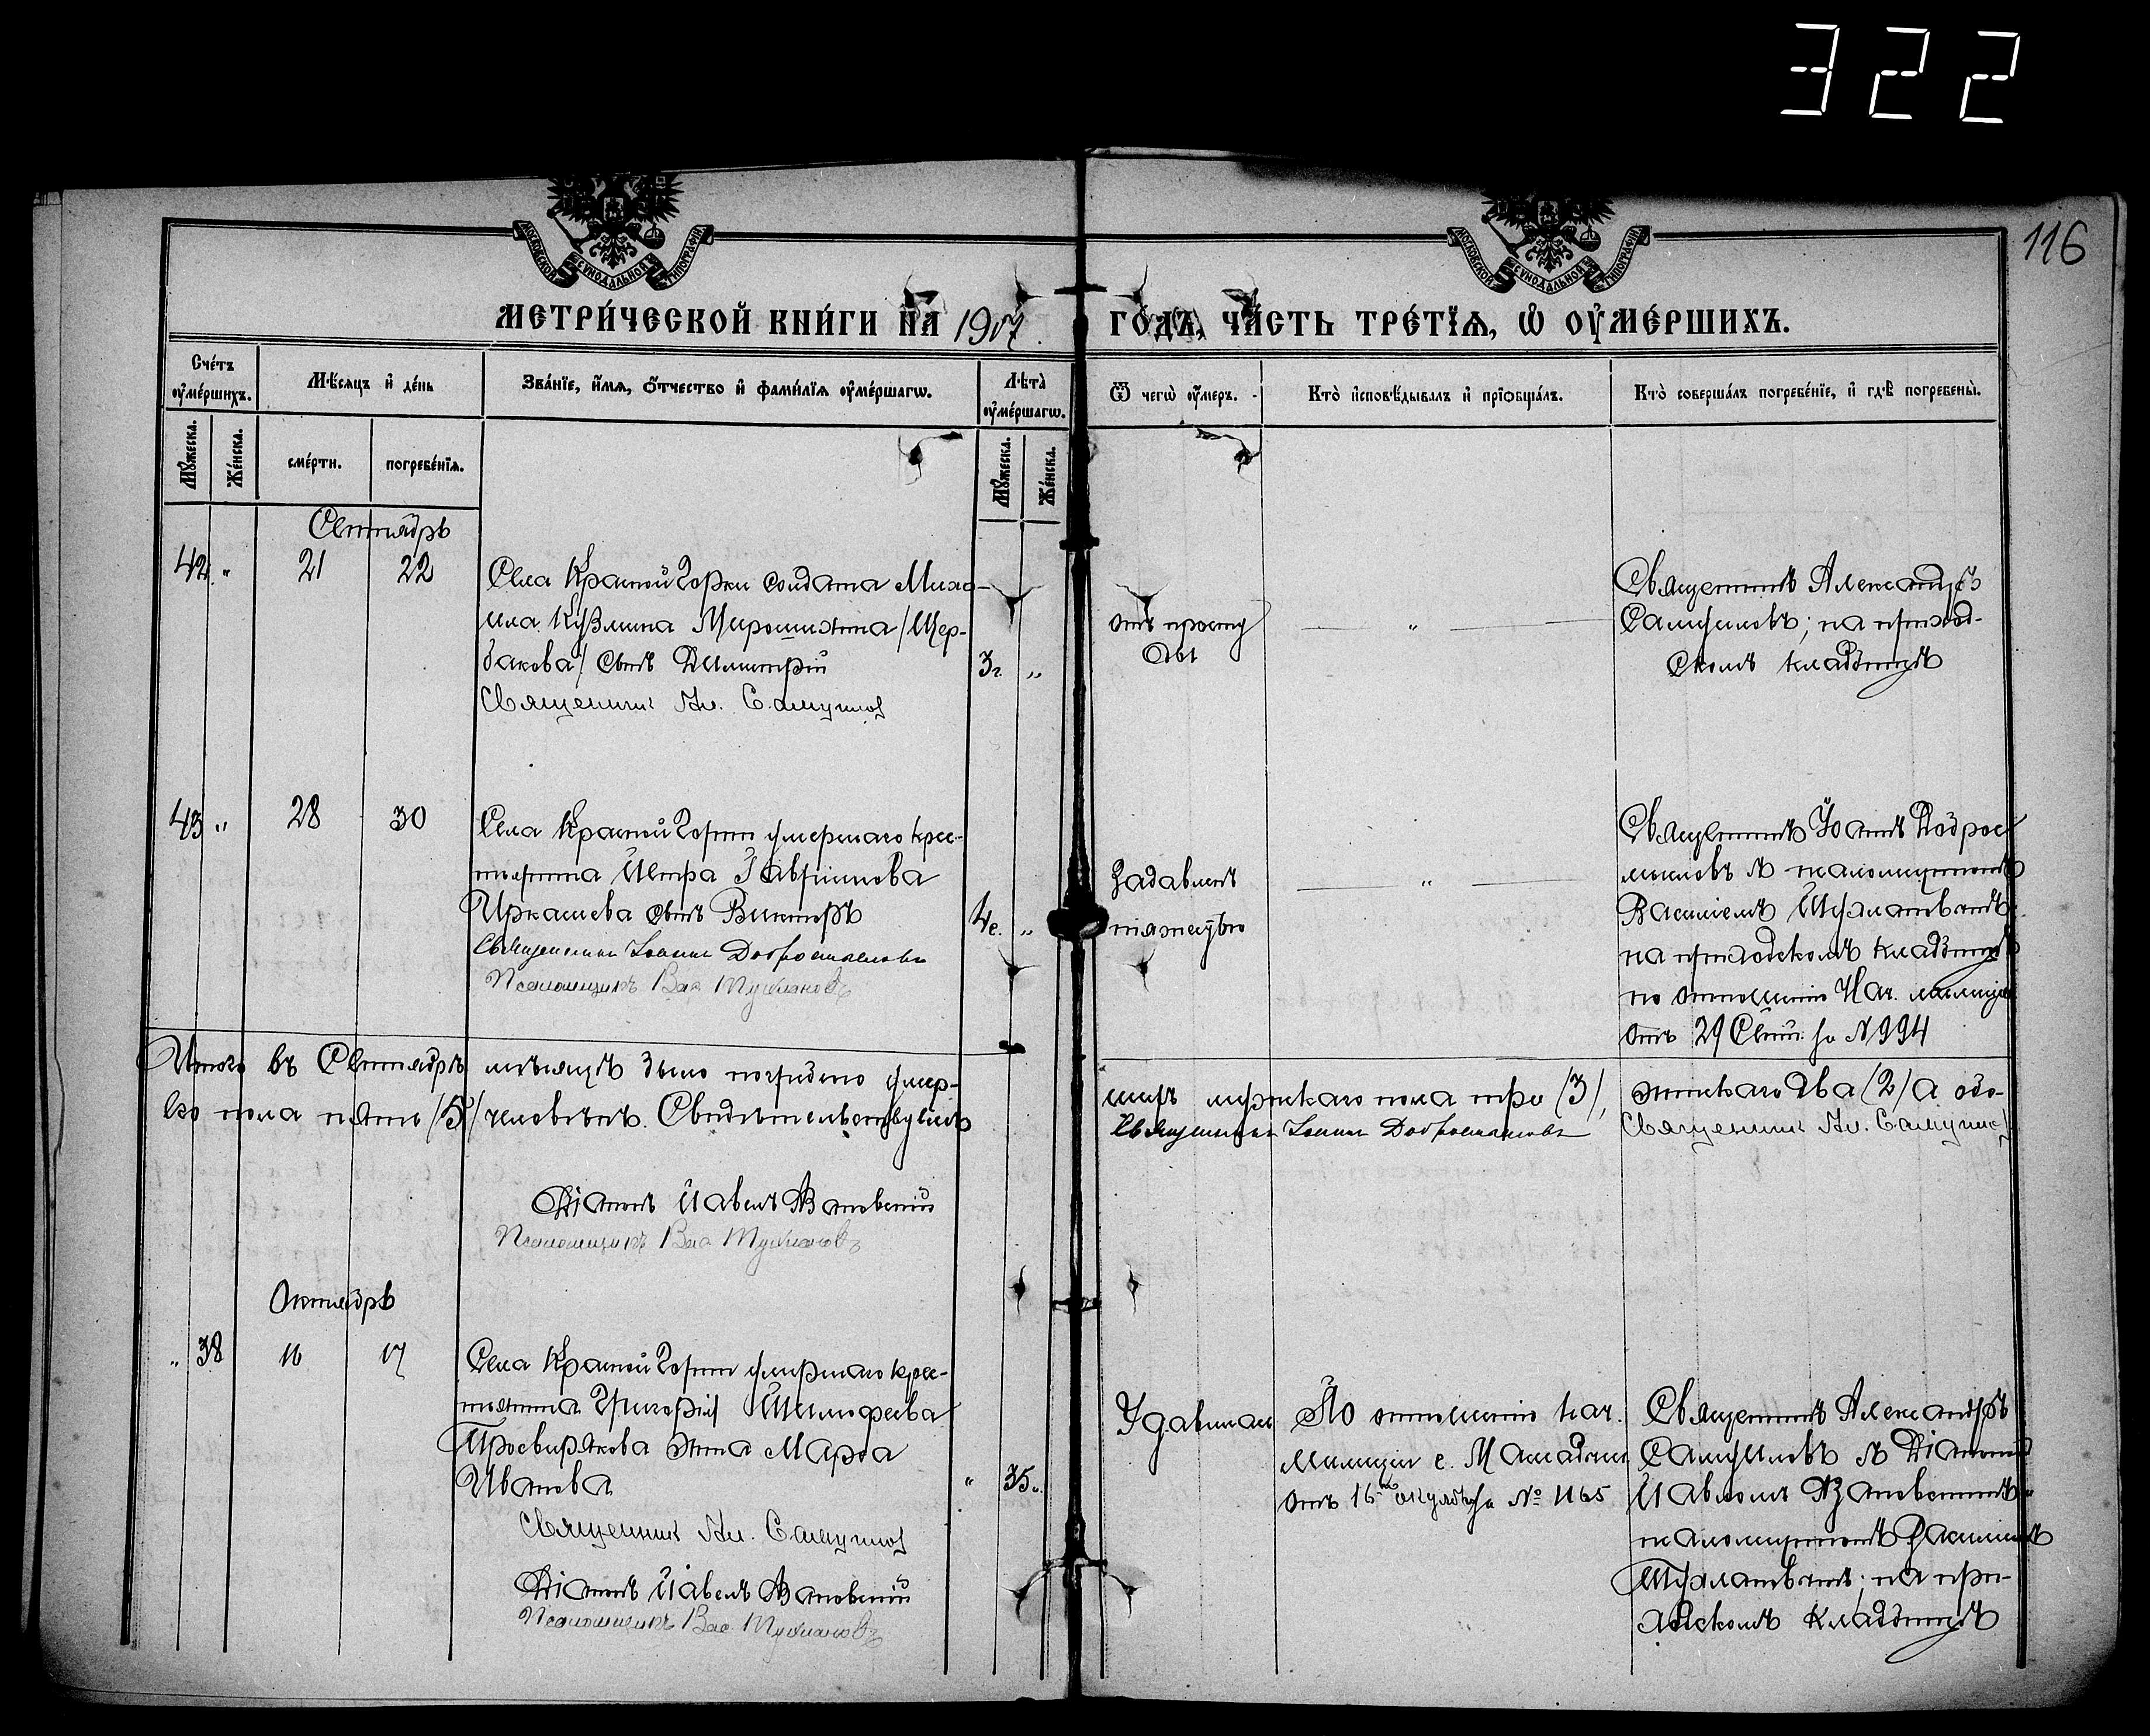 322
116
МОСКОВСКОЙ СѴНОДАЛЬНОЙ ТИПОГРАФІИ
МОСКОВСКОЙ СѴНОДАЛЬНОЙ ТИПОГРАФІИ
МЕТРИ́ЧЕСКОЙ КНИ́ГИ НА 1907 ГО́ДЪ, ЧА́СТЬ ТРЕ́ТІѦ, Ѡ҆ ОУ҆МЕ́РШИХЪ.
Сче́тъ оу҆ме́ршихъ.
Мꙋ́жеска.
Же́нска.
Мѣ́сяцъ и҆ де́нь
сме́рти.
погребе́нїѧ.
Зва́нїе, и҆́мѧ, ѻ҆́тчество и҆ фами́лїѧ оу҆ме́ршагѡ.
Лѣ́та оу҆ме́ршагѡ.
Мꙋ́жеска.
Же́нска.
Ѿ чегѡ̀ оу҆́меръ.
Кто̀ и҆сповѣ́дывалъ и҆ прїѻбща́лъ.
Кто̀ соверша́лъ погребе́нїе, и҆ гдѣ̀ погребены̀.
Сентябрь
42 " 21 22
Села Красной Горки солдата Миха-
ила Кузмина Мирошихина /Щер-
бакова/ сынъ Димитрій
Священникъ Ал. Самуилов
3г. "
отъ просту
ды
"
Священникъ Александръ
Самуиловъ; на приход-
скомъ кладбищѣ
43 " 28 30
Села Красной Горки умершаго крес-
тьянина Петра Гавриилова
Иркашева сынъ Викторъ
Священникъ Іоаннъ Добросмысловъ
Псаломщикъ Вас
4г. "
Задавленъ
тяжестью
"
Священникъ Іоаннъ Доброс
мысловъ съ псаломщикомъ
Василіемъ
на приходскомъ кладбищѣ
по отношенію Нач. милиціи
отъ 29 Сент. за N 994
Итого въ Сентябрѣ мѣсяцѣ было погребено умер-
шихъ мужескаго пола три /3/, женскаго два /2/ а обо-
его пола пять /5/ человѣкъ. Свидѣтельствуемъ
Священникъ Іоаннъ Добросмысловъ
Священникъ Ал. Самуилов
Діаконъ Павелъ
Псаломщикъ Вас
Октябрь
" 38 16 17
Села Красной Горки умершаго крес-
тьянина Григорія Тимофеева
Просвирякова жена Марѳа
Иванова
Священникъ Ал. Самуилов
Діаконъ Павелъ
Псаломщикъ Вас
" 35
Удавилась
По отношенію нач.
милиціи с. Мамадыш
отъ 16го октября за № 1165
Священникъ Александръ
Самуиловъ съ Діакономъ
Павломъ
псаломщикомъ Василіемъ
на при-
ходскомъ кладбищѣ